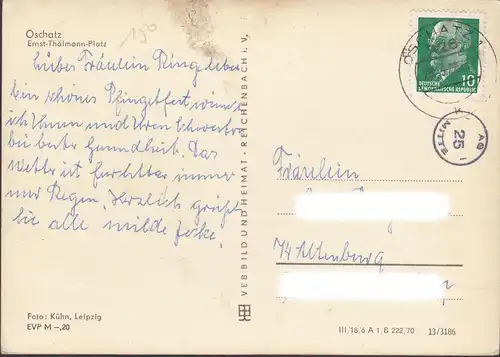 Oschatz
Ernst-Thälmann-Platz
190
Liebes Fräulein Ringeleben
Ein schönes Pfingstfest wünscht
ich Ihnen und Ihren Schwestern
bei bester Gesundheit. Das
Wetter ist furchtbar immer
nur Regen. Herzlich grüßt
Sie alle
Foto: Kühn, Leipzig
EVP M –,20
VEB BILD UND HEIMAT · REICHENBACH i. V.
OSCHATZ 1
DEUTSCHE
DEMOKRATISCHE REPUBLIK
10
AG
25
MITTE
Fräulein
74 Altenburg
III/18/6 A 1 B 222/70
13/3186